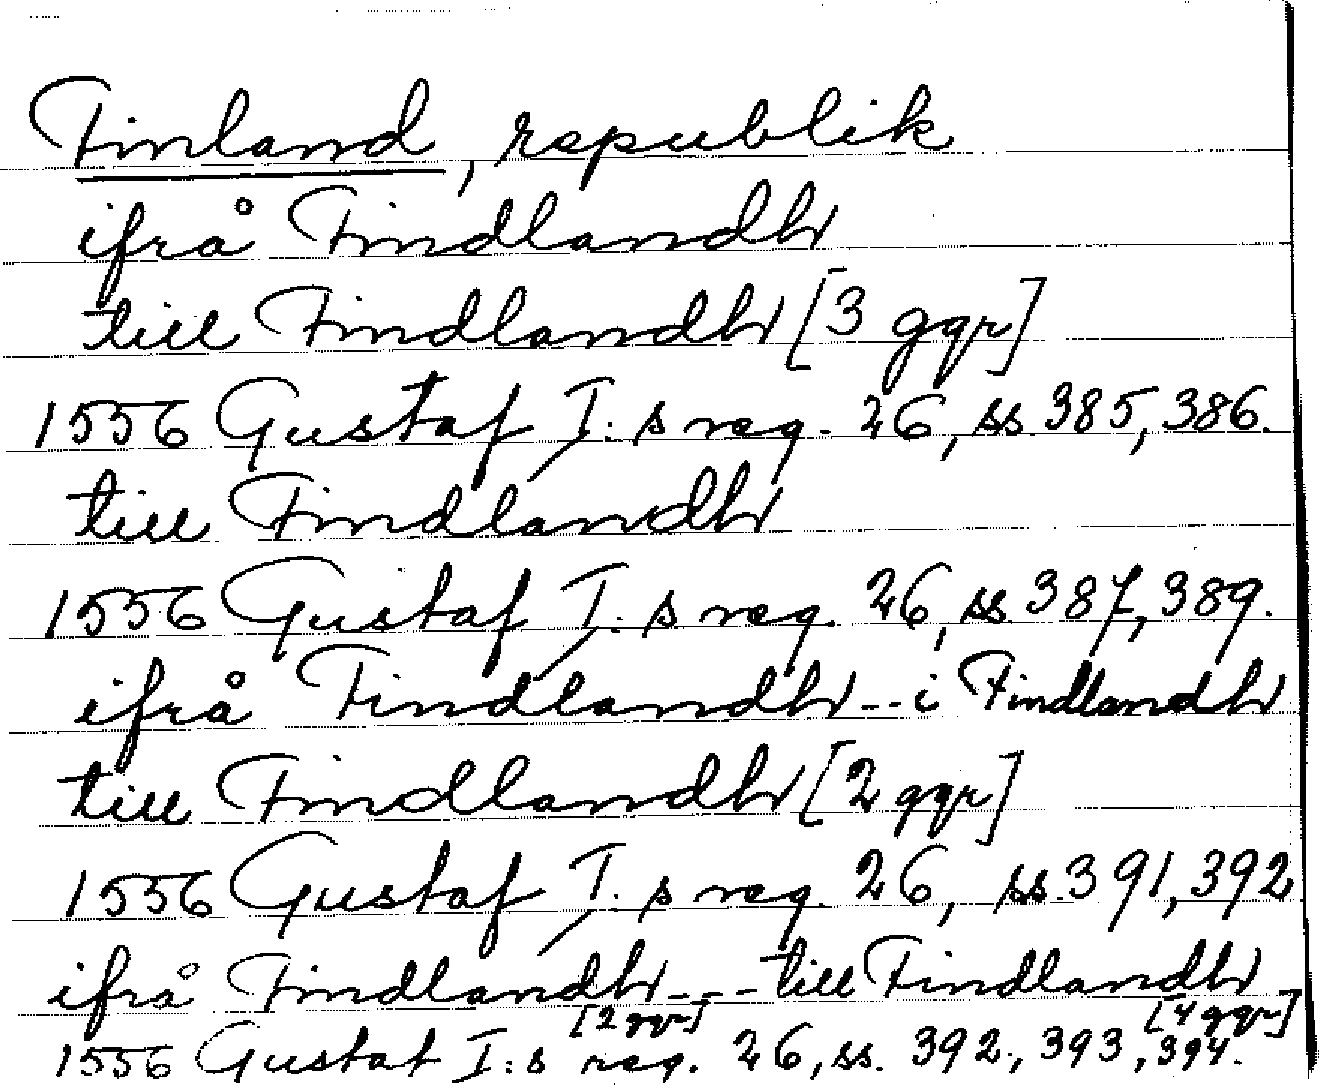 Finland, republik
ifrå Findlandh
till Findlandh [3 ggr]
1556 Gustaf I:s reg. 26, ss. 385, 386.
till Findlandh
1556 Gustaf I:s reg. 26, ss. 387, 389.
ifrå Findlandh - - i Findlandh
till Findlandh [2 ggr]
1556 Gustaf I:s reg. 26, ss. 391, 392
ifrå Findlandh - - - till Findlandh
[2 ggr] [4 ggr]
1556 Gustaf I:s reg. 26, ss. 392, 393, 394.